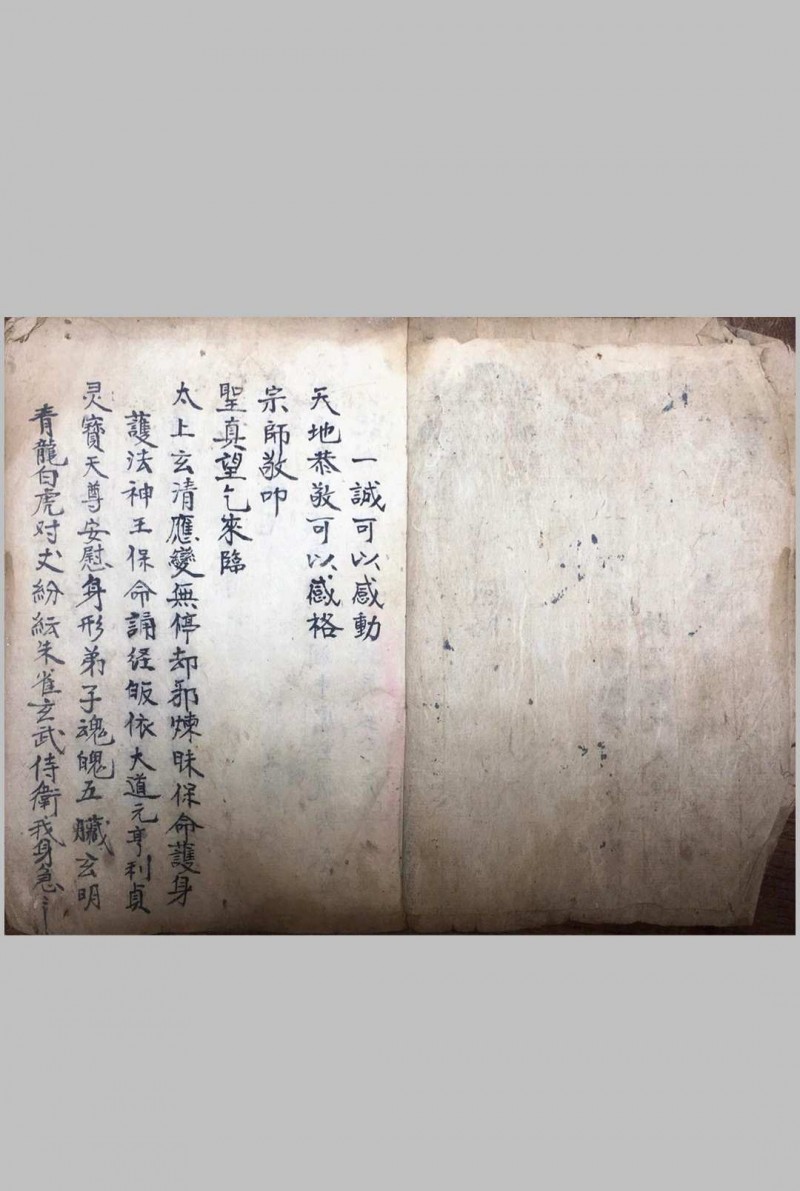 一誠可以感動
天地恭敬可以感格
宗師敬叩
聖真望乞來臨
太上玄清應變無停却邪煉昧保命護身
護法神王保命誦経皈依大道元亨利貞
灵寶天尊安慰身形弟子魂魄五臟玄明
青龍白虎对丈紛紜朱雀玄武侍衛我身急〻